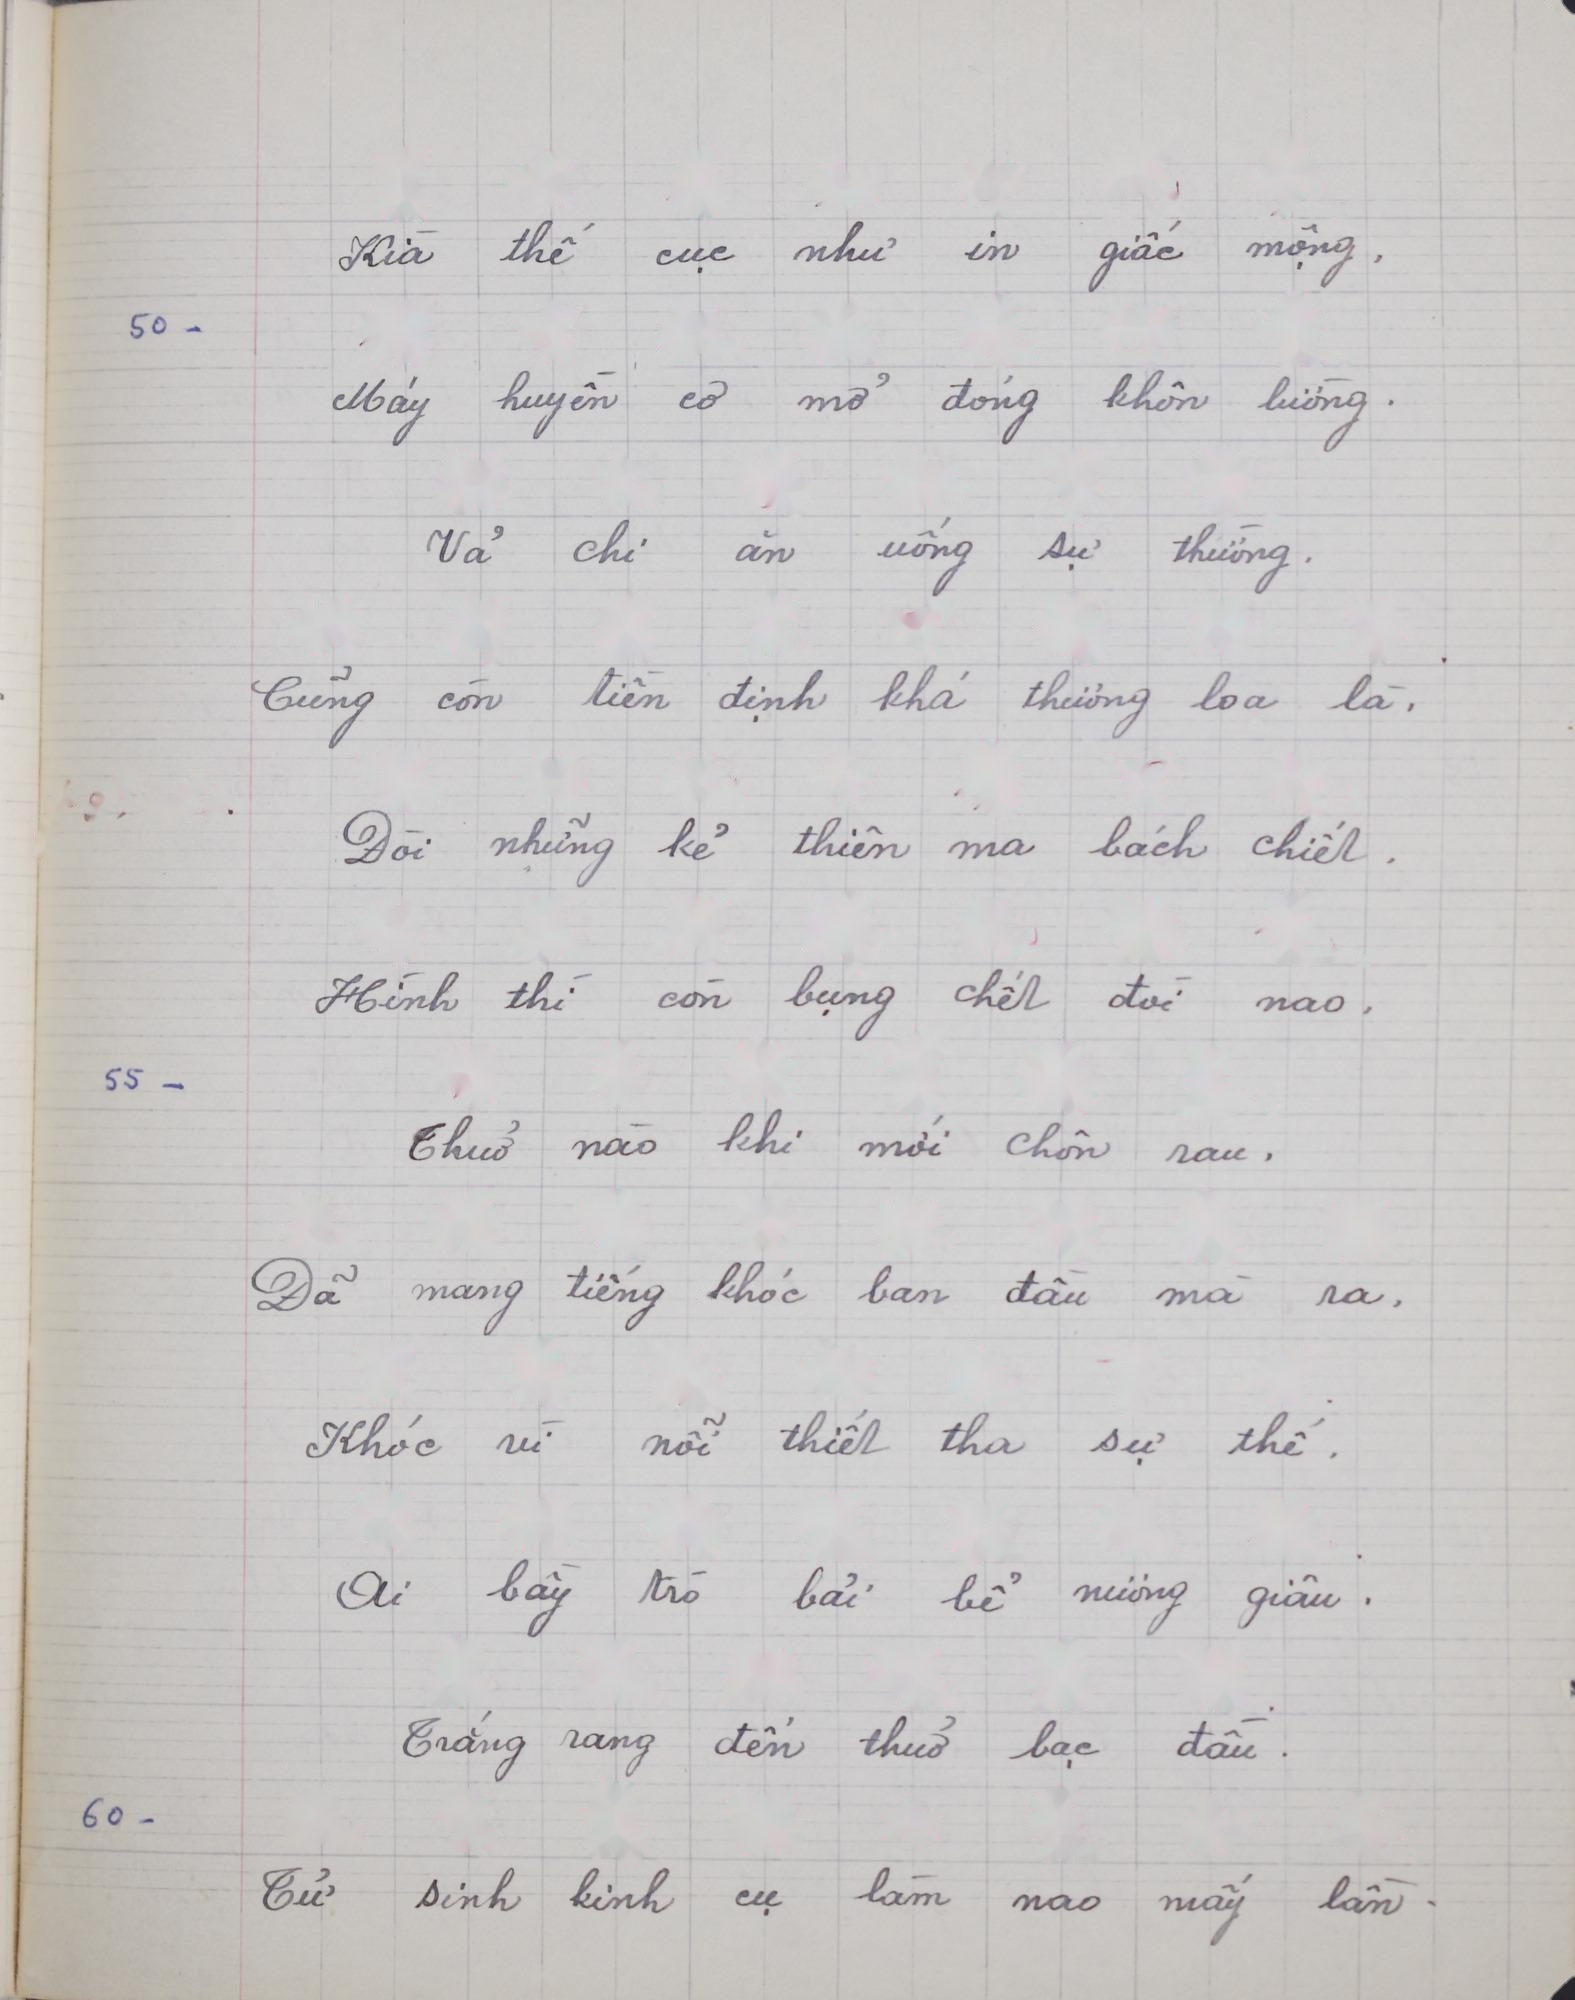 Kià thế cục như in giấc mộng,
50 -
Máy huyền cơ mở đóng khôn lường.
Vả chi ăn uống sự thường.
Cũng còn tiền định khá thương loa là,
Đòi những kẻ thiên ma bách chiết.
Hình thì còn bụng chết đòi nao.
55 -
Thuở nào khi mới chôn rau,
Đã mang tiếng khóc ban đầu mà ra.
Khóc vì nỗi thiết tha sự thế.
Ai bầy trò bải bể nương giâu.
Trắng rang đến thuở bạc đầu.
60 -
Tử sinh kinh cụ làm nao mấy lần.